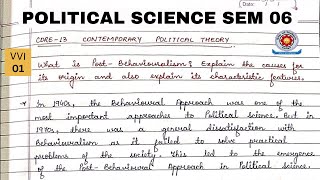 POLITICAL SCIENCE SEM 06
Date: / /
VVI
01
CORE-13 CONTEMPORARY POLITICAL THEORY
What is Post-Behaviouralism? Explain the causes for
its origin and also explain its characteristic features.
In 1940s, the Behavioural Approach was one of the
most important approaches to Political science. But in
1970s, there was a general dissatisfaction with
Behaviouralism as it failed to solve practical
problems of the society. This led to the emergence
of the Post-Behavioural Approach in Political Science.